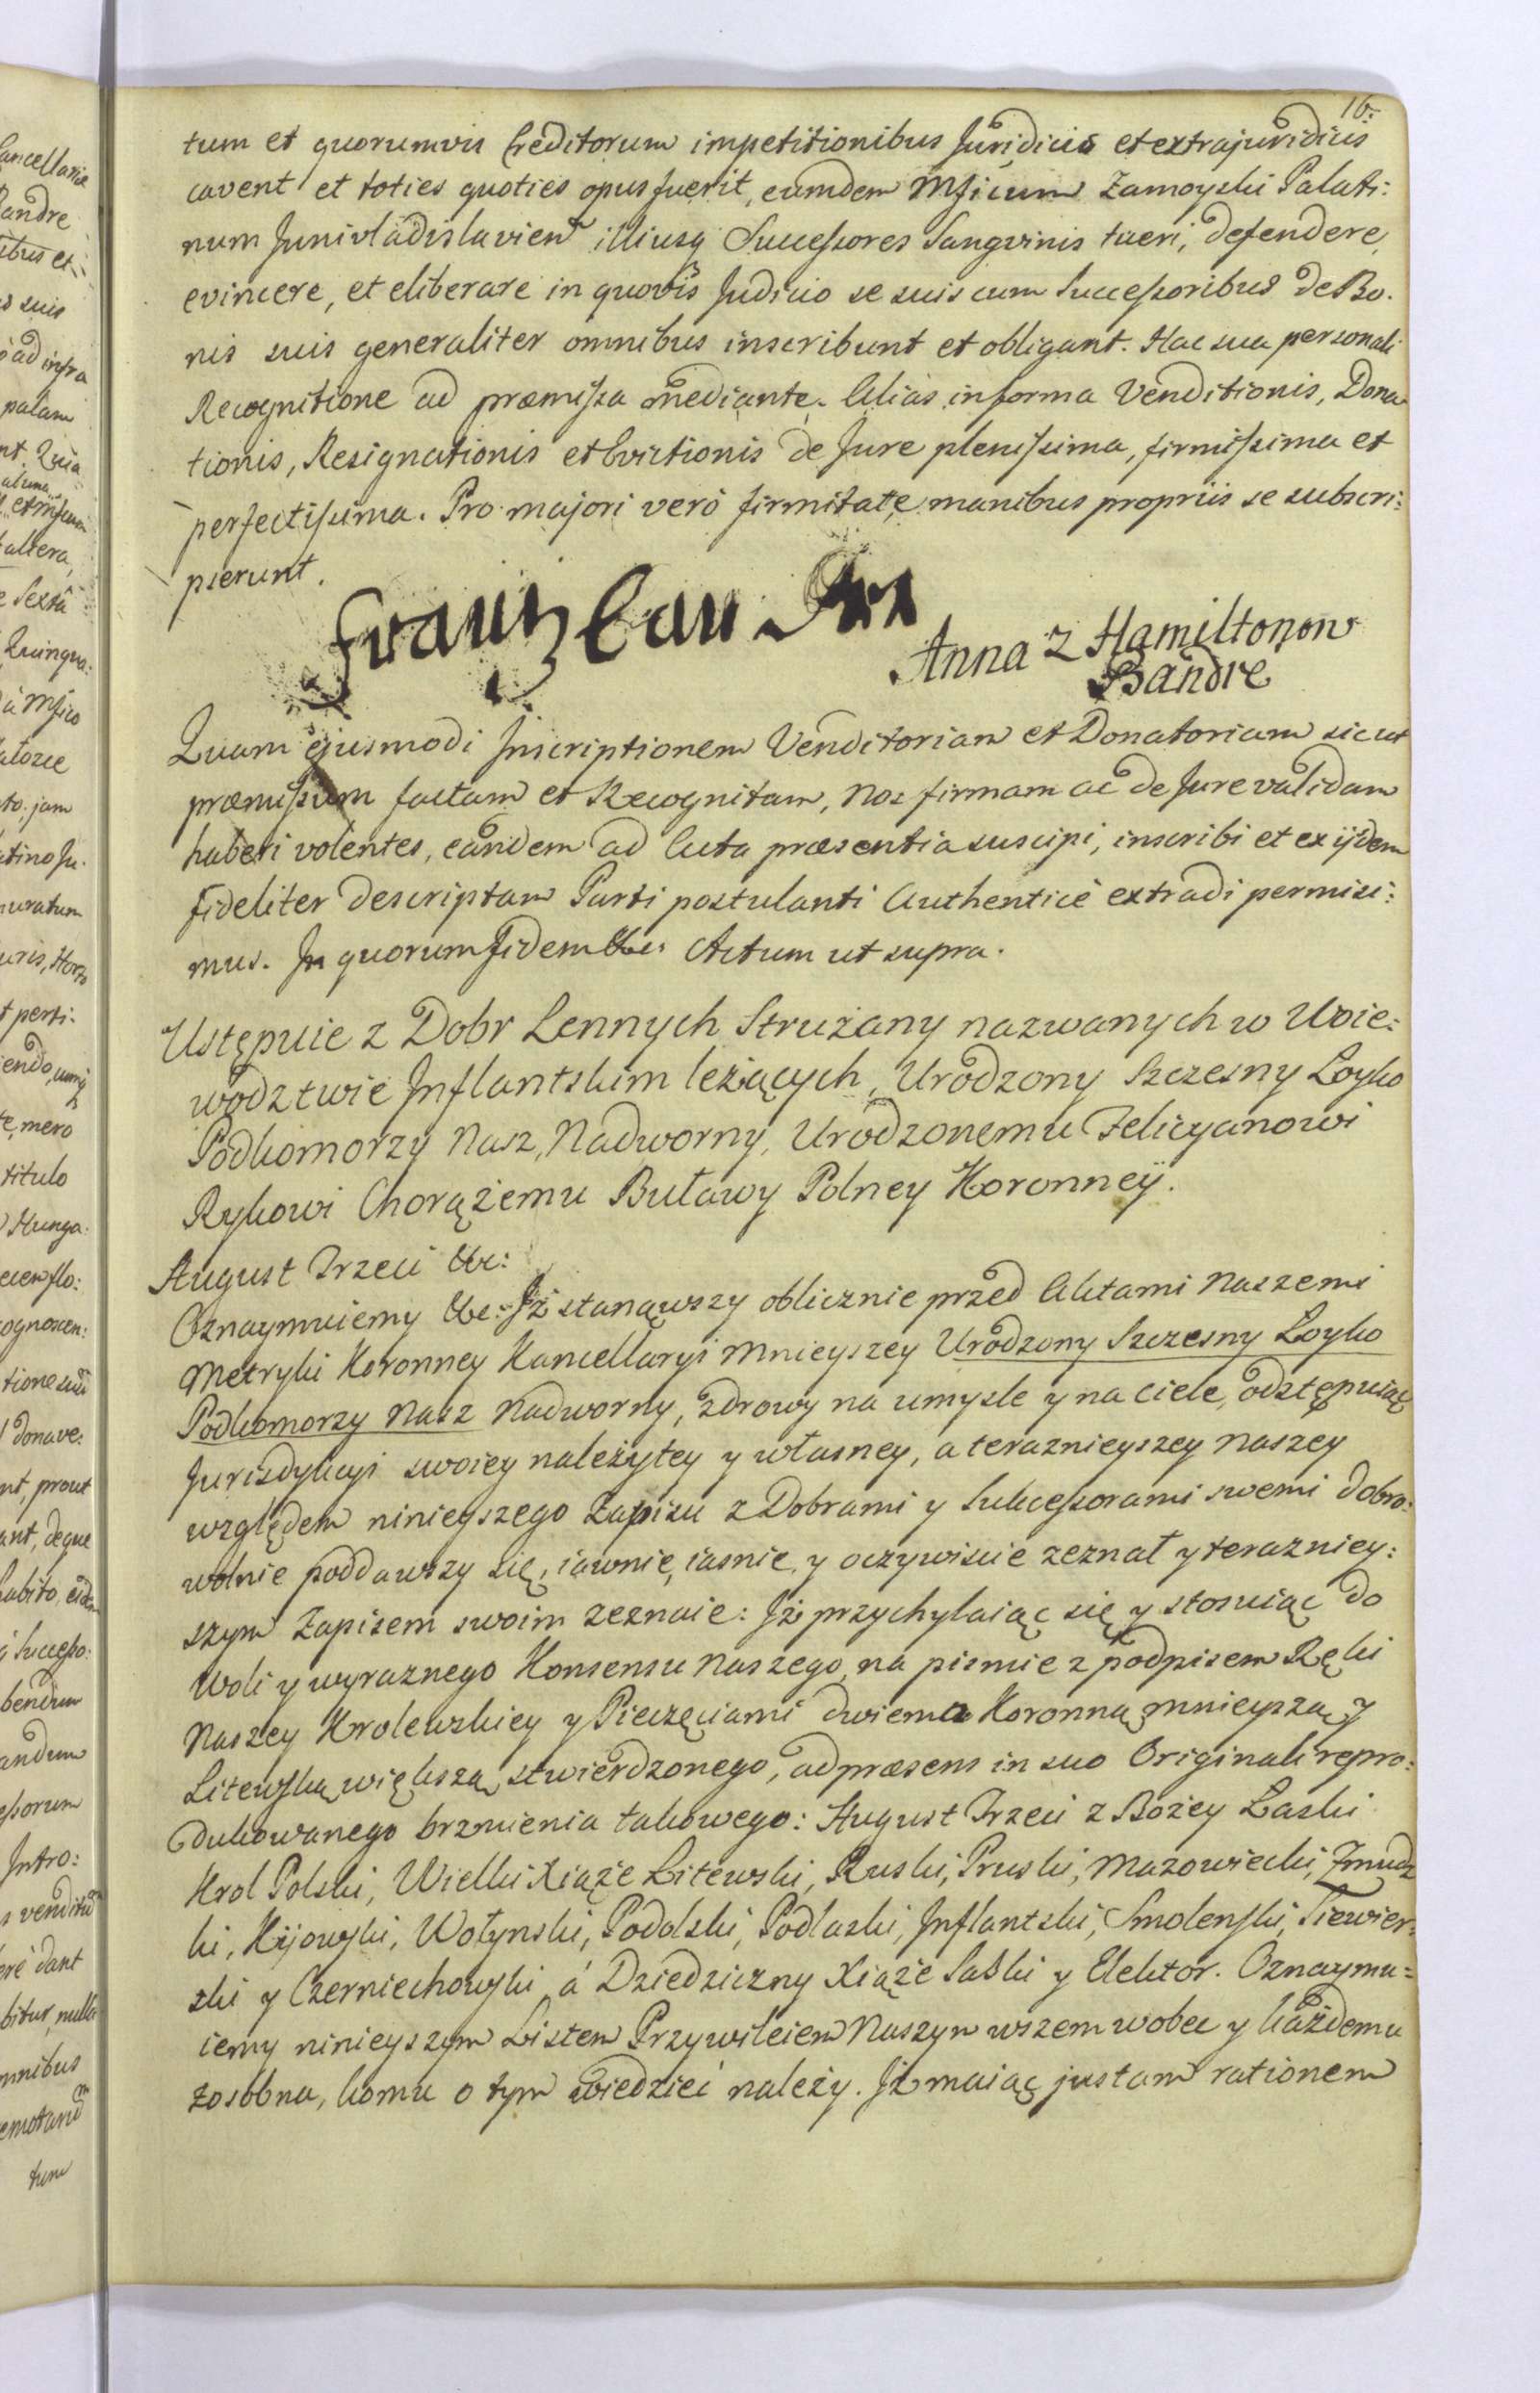 16.
tum et quorumvis Creditorum impetitionibus Juridicis et extrajuridicis
cavent et toties quoties opus fuerit, eumdem Mficum Zamoyski Palati:
num Junivladislavien illiusq Successores Sangvinis tueri, defendere,
evincere, et eliberare in quovis Judicio se suis cum Successoribus de Bo.
nis suis generaliter omnibus inscribunt et obligant. Hac sua personali
Recognitione ad præmissa mediante. Alias in forma Venditionis, Dona
tionis, Resignationis et Evictionis de Jure plenissima, firmissima et
perfectissima. Pro majori veró firmitate manibus propriis se subscri:
pserunt.
Anna z Hamiltonow
Bandre
Quam ejusmodi Inscriptionem Venditoriam et Donatoriam sicut
præmissum factam et Recognitam, Nos firmam ac de Jure validam
haberi volentes, eandem ad Acta præsentia suscipi, inscribi et ex ijsdem
fideliter descriptam Parti postulanti Authenticè extradi permisi:
mus. In quorum fidem &c: Actum ut supra.
Ustępuie z Dobr Lennych Strużany nazwanych w Woie:
wodztwie Inflantskim leżących, Urodzony Szczesny Łoyko
Podkomorzy Nasz, Nadworny, Urodzonemu Felicyanowi
Rykowi Chorążemu Buławy Polney Koronneÿ.
August Trzeci &c:
Oznaymuiemy &c: Jż stanąwszy oblicznie przed Aktami Naszemi
Metryki Koronney Kancellaryi Mnieyszey Urodzony Szczesny Łoyko
Podkomorzy Nasz Nadworny, zdrowy na umysle y na ciele, odstępuiąc
Jurisdykcyi swoiey należytey y własney, a terazniejszey Naszey
względem ninieyszego Zapisu z Dobrami y Sukcessorami swemi dobro:
wolnie poddawszy się, iawnie, iasnie y oczywiscie zeznał y terazniey:
szym Zapisem swoim zeznaie: Jż przychylaiąc się y stosuiąc do
Woli y wyraznego Konsensu Naszego, na pismie z podpisem Ręki
Naszey Krolewskiey y Pieczęciami dwiema Koronną mnieyszą, y
Litewską większą stwierdzonego, ad præsens in suo Originali repro:
dukowanego brzmienia takowego: August Trzeci z Bożey Łaski
Krol Polski, Wielki Xiąże Litewski, Ruski, Pruski, Mazowiecki, Zmudz
ki, Kijowski, Wołynski, Podolski, Podlaski, Inflantski, Smolenski, Siewier:
ski y Czerniechowski, á Dziedziczny Xiąże Saski y Elektor. Oznaymu=
iemy ninieyszym Listem Przywileiem Naszym wszem wobec y każdemu
zosobna, komu o tym wiedzieć należy. Jż maiąc justam rationem